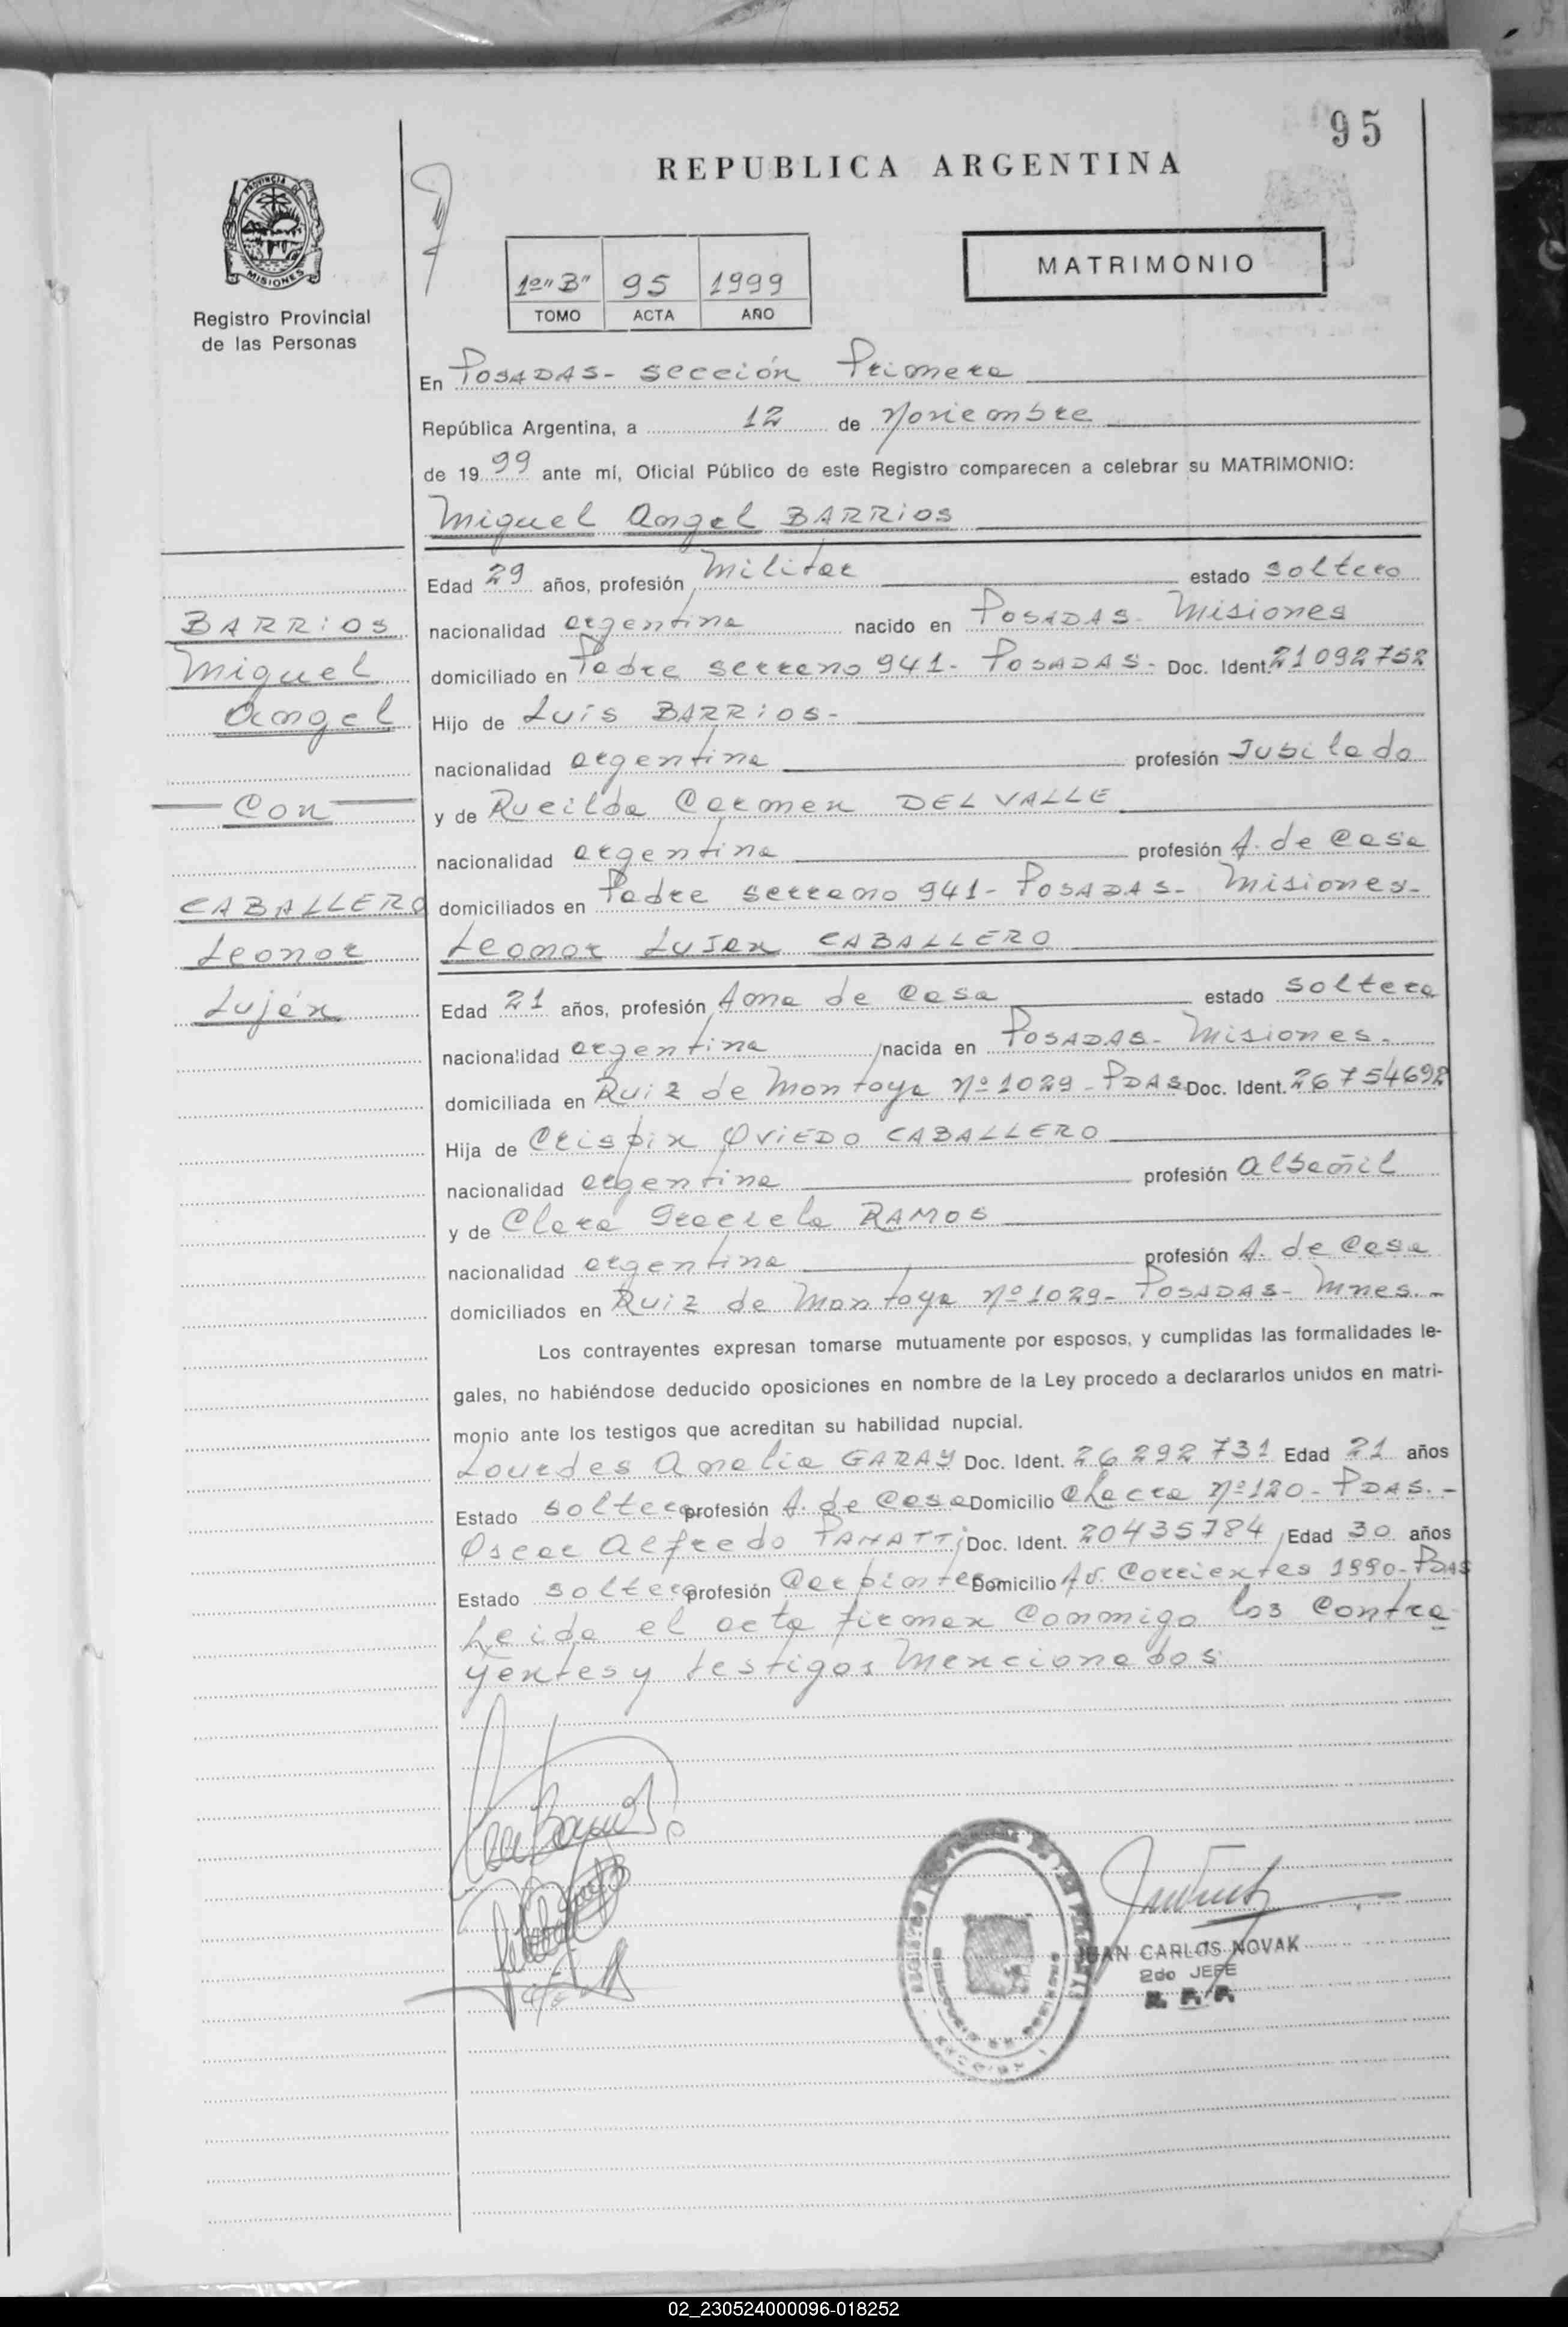 95
REPUBLICA ARGENTINA
PROVINCIA DE
MISIONES
Registro Provincial
de las Personas
1º "B" 95 1999
TOMO ACTA AÑO
MATRIMONIO
En POSADAS- sección Primera
República Argentina, a 12 de Noviembre
de 1999 ante mí, Oficial Público de este Registro comparecen a celebrar su MATRIMONIO:
Miguel Angel BARRIOS
Edad 29 años, profesión Militar estado soltero
BARRIOS
nacionalidad argentina nacido en POSADAS- Misiones
Miguel
domiciliado en Padre serreno 941- POSADAS- Doc. Ident. 21092752
Angel
Hijo de Luis BARRIOS-
nacionalidad argentina profesión Jubilado
Con
y de Rucilda Carmen DEL VALLE
nacionalidad argentina profesión A. de Casa
CABALLERO
domiciliados en Padre serreno 941- POSADAS- Misiones-
Leonor
Leonor Lujan CABALLERO
Luján
Edad 21 años, profesión Ama de Casa estado soltera
nacionalidad argentina nacida en POSADAS- Misiones.
domiciliada en Ruiz de Montoya Nº 1029- PDAS Doc. Ident. 26754692
Hija de Crispin OVIEDO CABALLERO
nacionalidad argentina profesión albañil
y de Clara Graciela RAMOS
nacionalidad argentina profesión A. de Casa
domiciliados en Ruiz de Montoya Nº 1029- POSADAS- Mnes.-
Los contrayentes expresan tomarse mutuamente por esposos, y cumplidas las formalidades le-
gales, no habiéndose deducido oposiciones en nombre de la Ley procedo a declararlos unidos en matri-
monio ante los testigos que acreditan su habilidad nupcial.
Lourdes Analia GARAY Doc. Ident. 26292731 Edad 21 años
Estado soltera profesión A. de Casa Domicilio Chacra Nº 120- PDAS.-
Oscar Alfredo PANATTi Doc. Ident. 20435784 Edad 30 años
Estado soltero profesión Carpintero Domicilio Av. Corrientes 1990- PDAS
Leida el acta firman Conmigo los Contra-
yentes y testigos Mencionados
JUAN CARLOS NOVAK
2do JEFE
R. P. P.
02_230524000096-018252